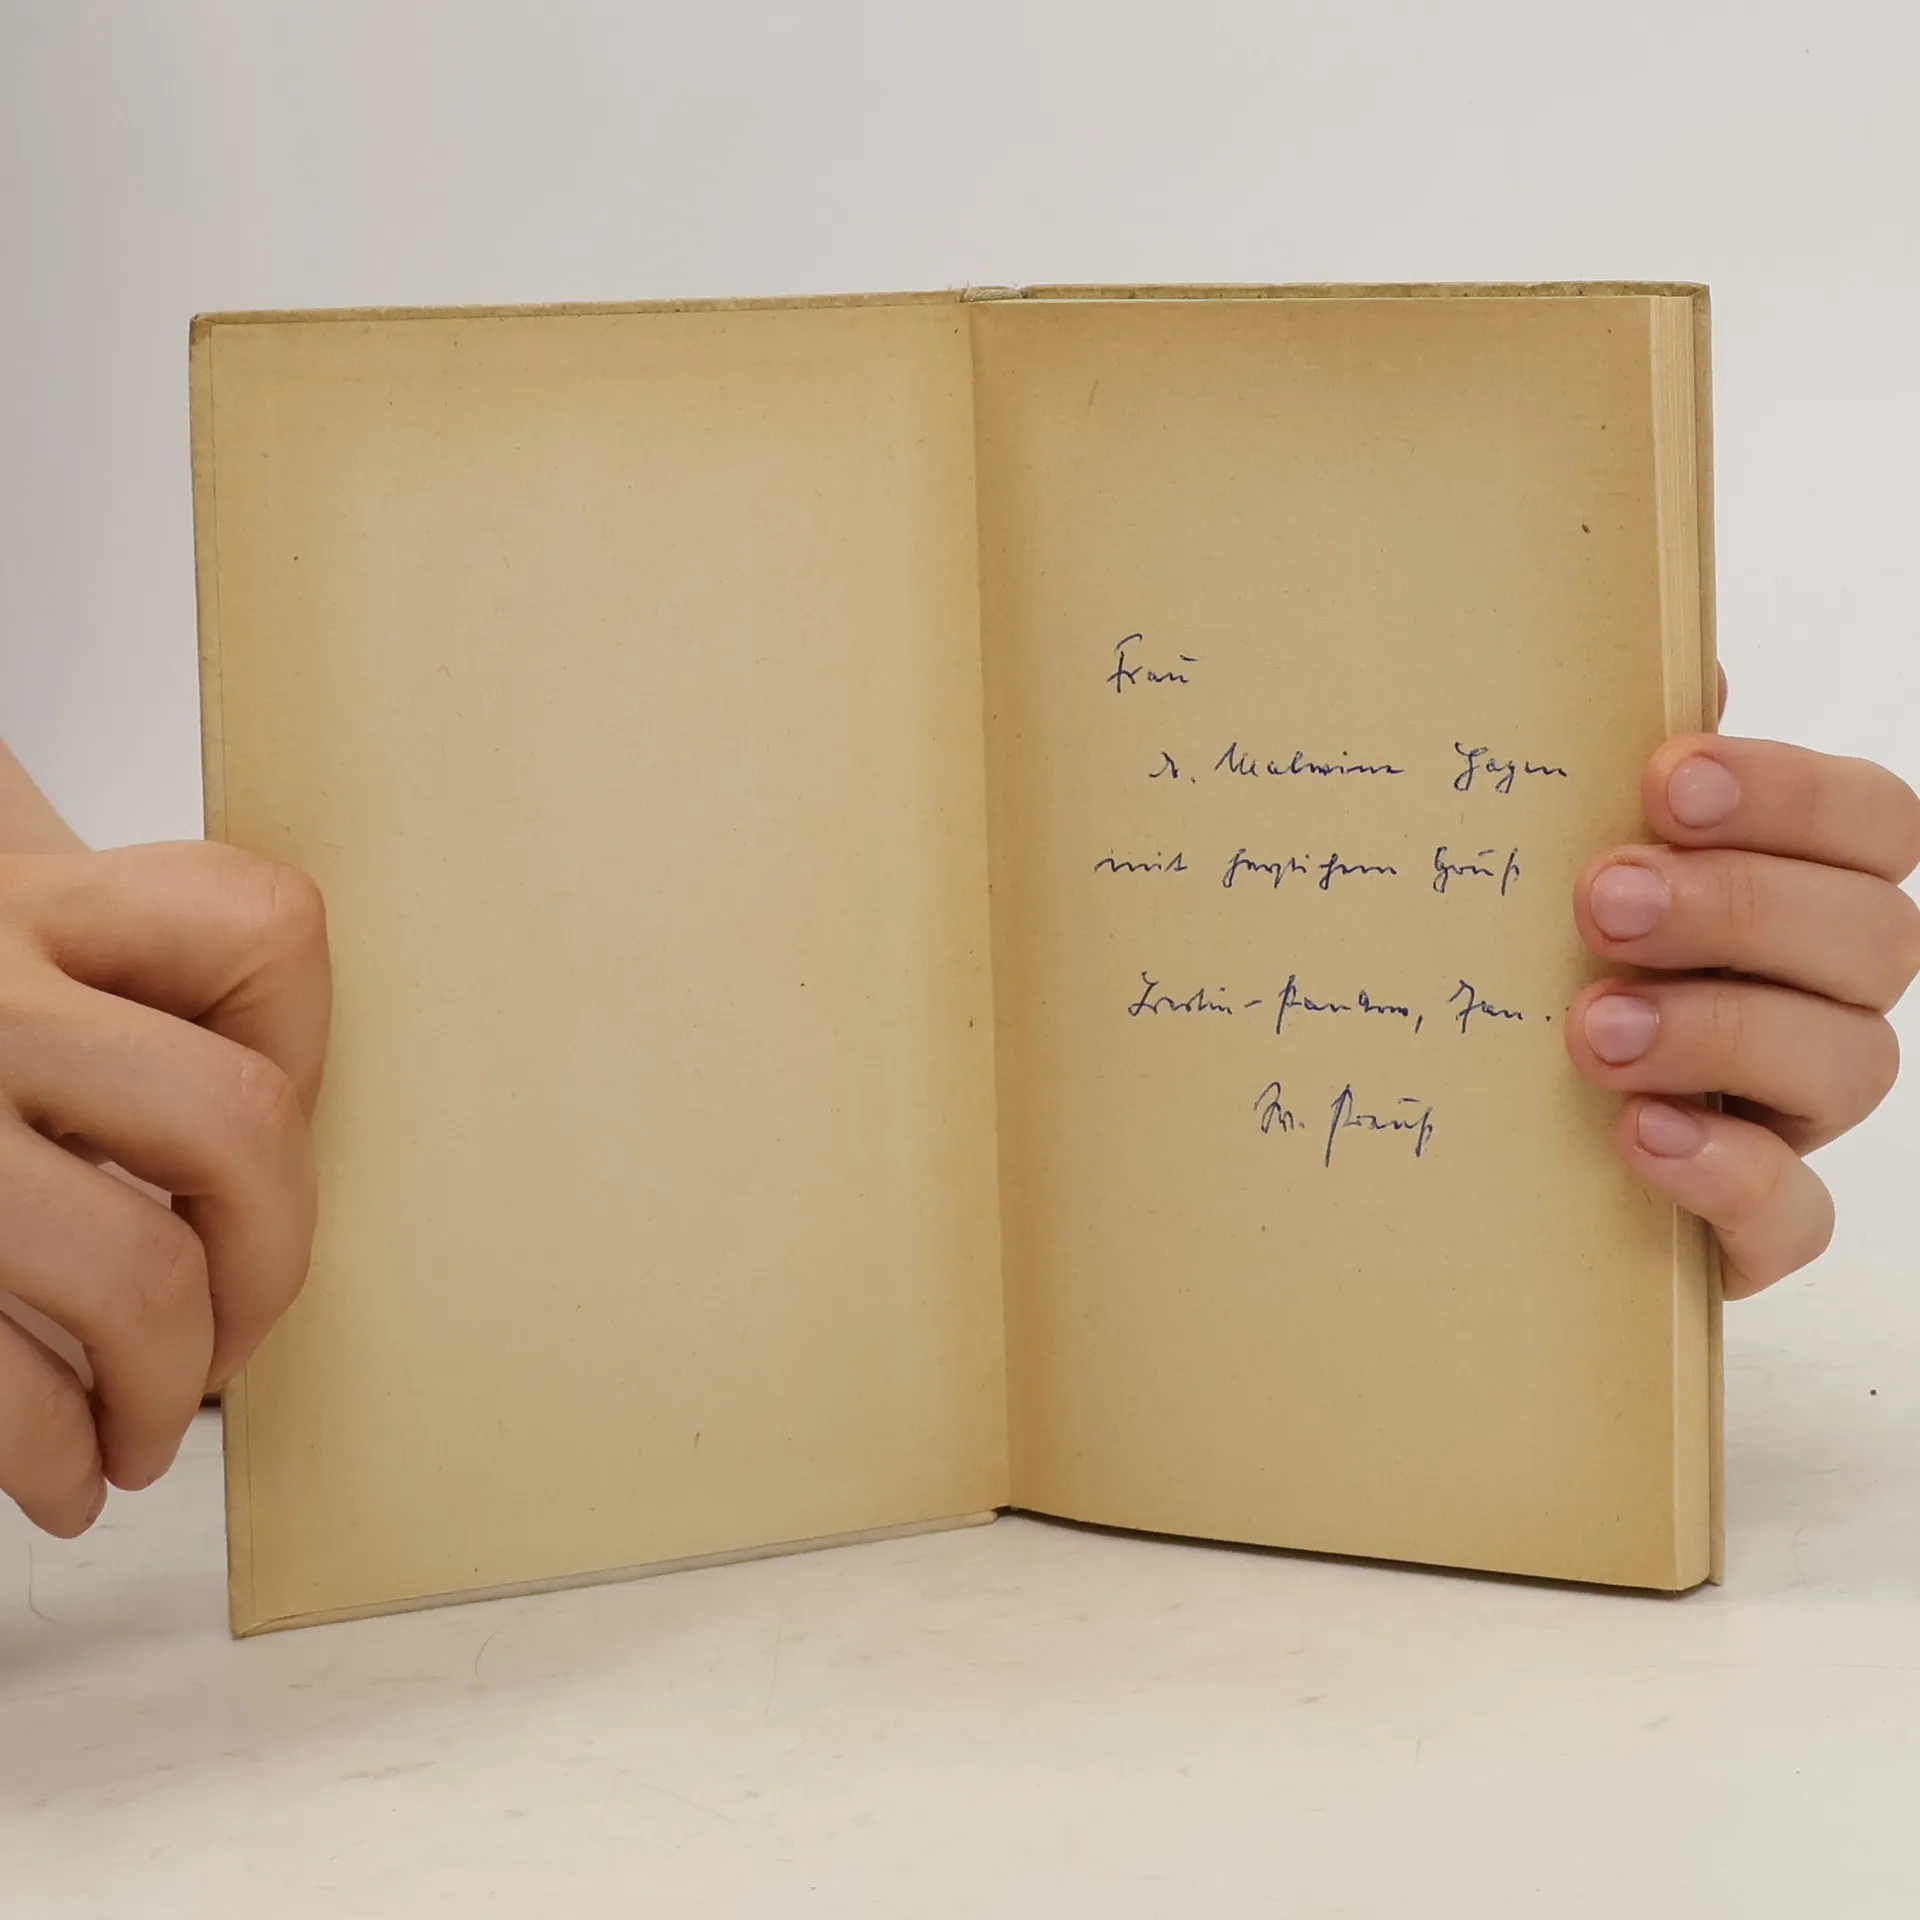 Frau
Malwine Hagen
mit herzlichem Gruß
Berlin-Pankow, Jan.
Preuß